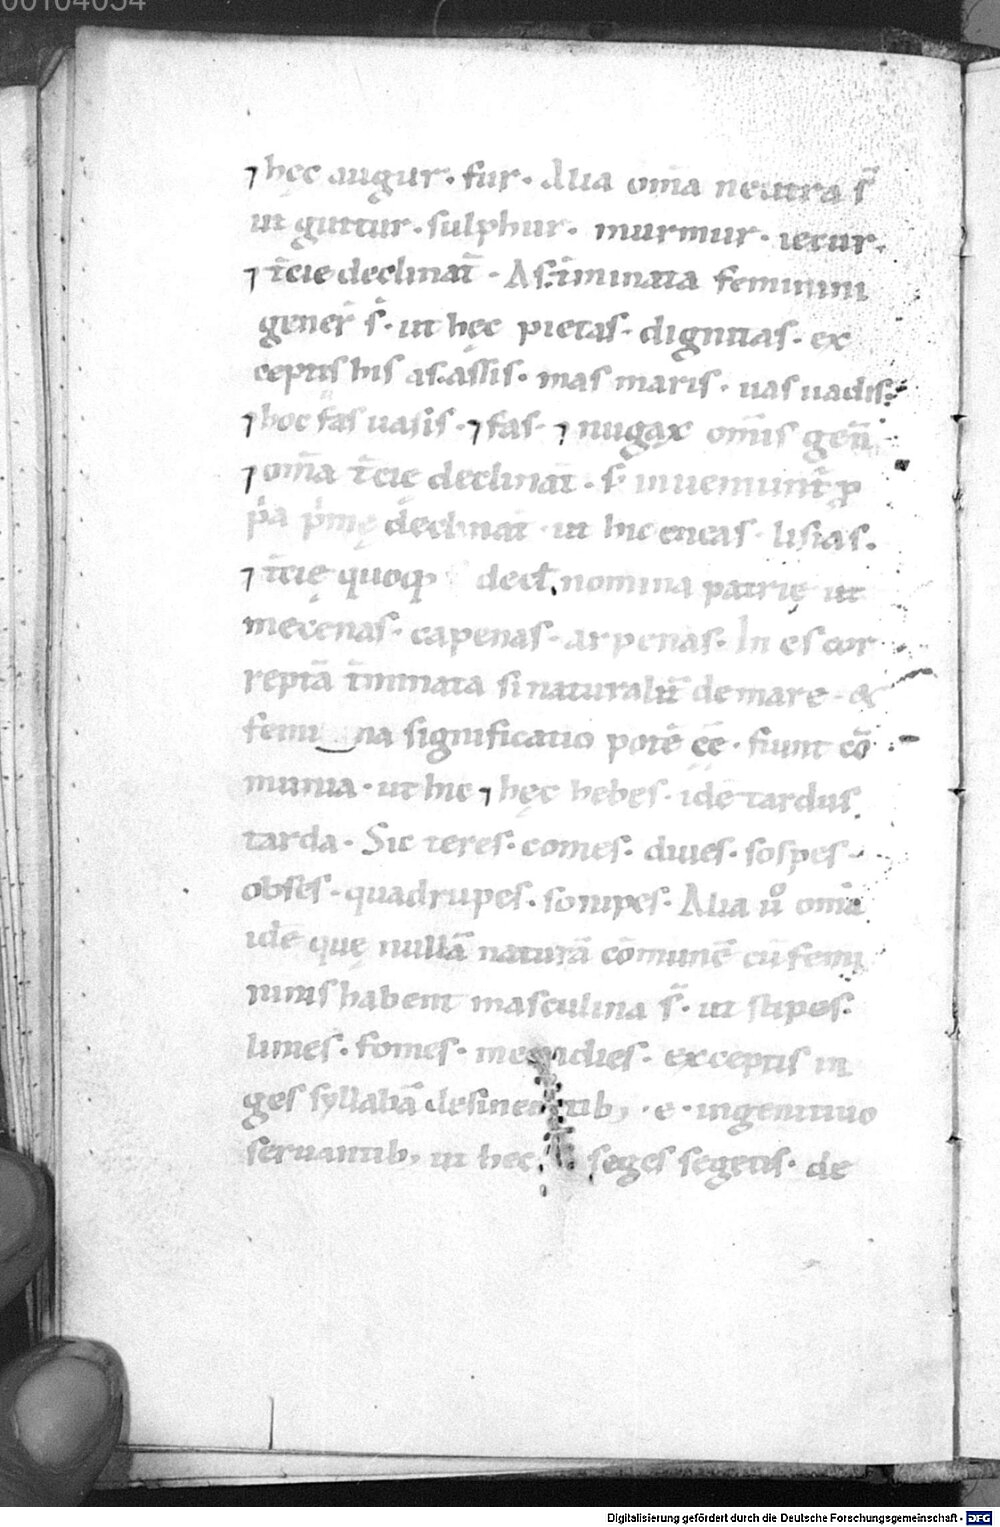 00104054
⁊ hęc augur · fur · Alia om̄a neutra s̄
ut guttur · sulphur · murmur · iecur ·
⁊ t̄cie declinat̄ · As t̄minata feminini
gener̄ s̄ · ut hęc pietas · dignitas · ex
ceptis his as · assis · mas maris · uas uadis ·
⁊ hoc uas uasis · ⁊ fas · ⁊ nugax om̄is gen̄
⁊ om̄a t̄cie declinat̄ · s̄ inueniunt̄ ꝓ
pͥa pͥmę declinat̄ · ut hic eneas · lisias ·
⁊ t̄cię quoq; decl̄ nomina patrię ut
mecenas · capenas · arpenas · In es cor
reptā t̄minata si naturalit̄ de mare · &
femi na significatio potē ēē · fiunt cō
munia · ut hic ⁊ hęc hebes · idē tardus
tarda · Sic teres · comes · diues · sospes ·
obses · quadrupes · sonipes · Alia uͦ om̄ia
idē quę nullā naturā cōmunē cū femi
ninis habent masculina s̄ · ut stipes ·
limes · fomes · meridies · exceptis in
ges syllabā desinentib; · e · in genitiuo
seruantib; ut hec seges segetis · de
Digitalisierung gefördert durch die Deutsche Forschungsgemeinschaft - DFG